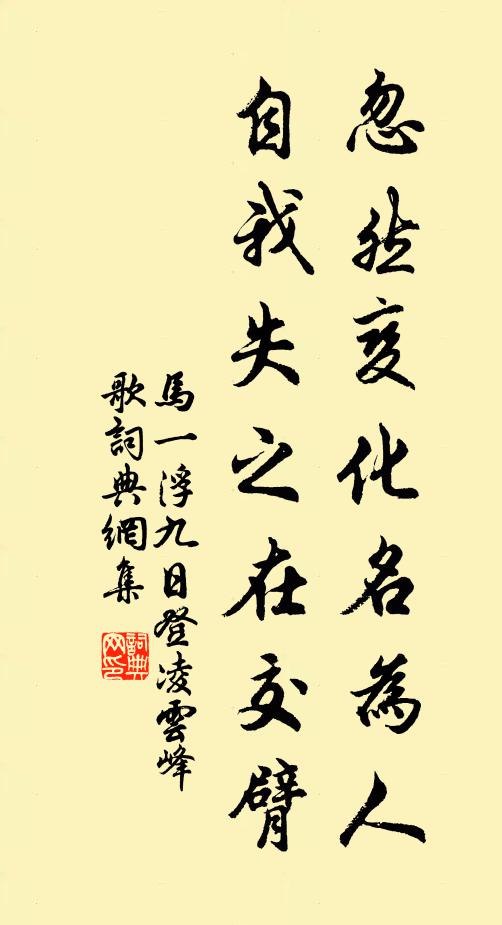 忽然变化名為人
自我失之在交臂
馬一浮九日登凌雲峰
歌詞典網集
詞典
网印